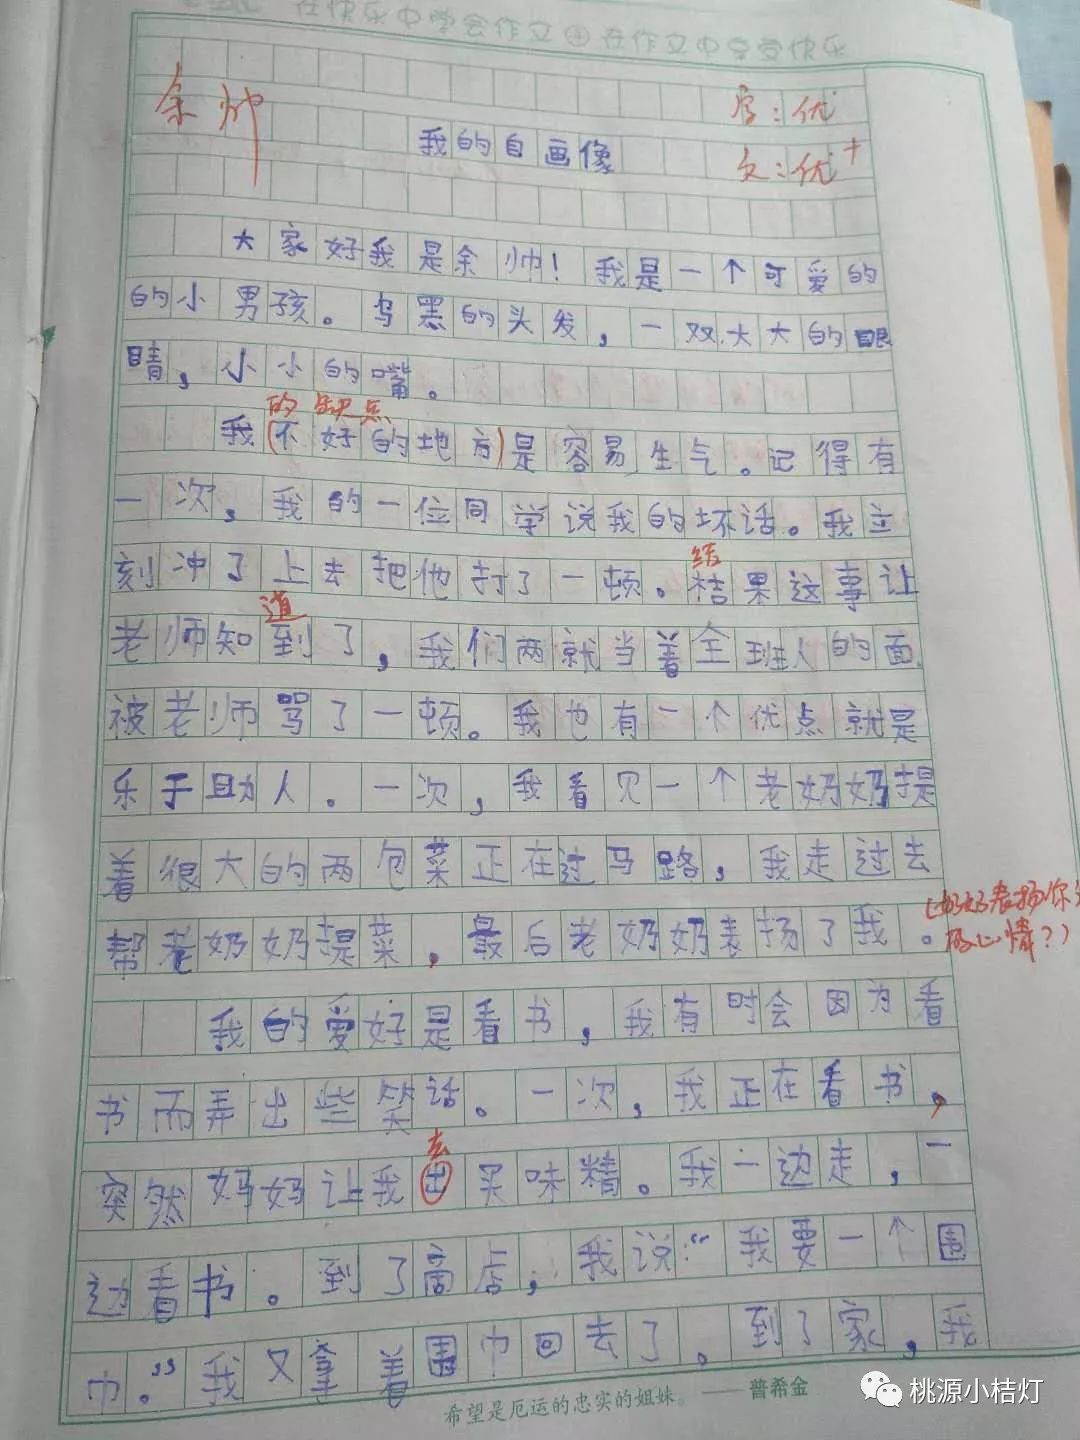 在快乐中学会作文 在作文中享受快乐
余帅
字:优
我的自画像
文:优+
大家好我是余帅!我是一个可爱的
的小男孩。乌黑的头发,一双大大的眼
睛,小小的嘴。
的缺点
我(不好的地方)是容易生气。记得有
一次,我的一位同学说我的坏话。我立
刻冲了上去把他打了一顿。桔果这事让
结
老师知到了,我们两就当着全班人的面
道
被老师骂了一顿。我也有一个优点就是
乐于助人。一次,我看见一个老奶奶提
着很大的两包菜正在过马路,我走过去
帮老奶奶提菜,最后老奶奶表扬了我。
(奶奶表扬你
的心情?)
我的爱好是看书,我有时会因为看
书而弄出些笑话。一次,我正在看书,
突然妈妈让我出买味精。我一边走,一
去
边看书。到了商店,我说:“我要一个围
巾。”我又拿着围巾回去了。到了家,我
希望是厄运的忠实的姐妹。——普希金
桃源小桔灯